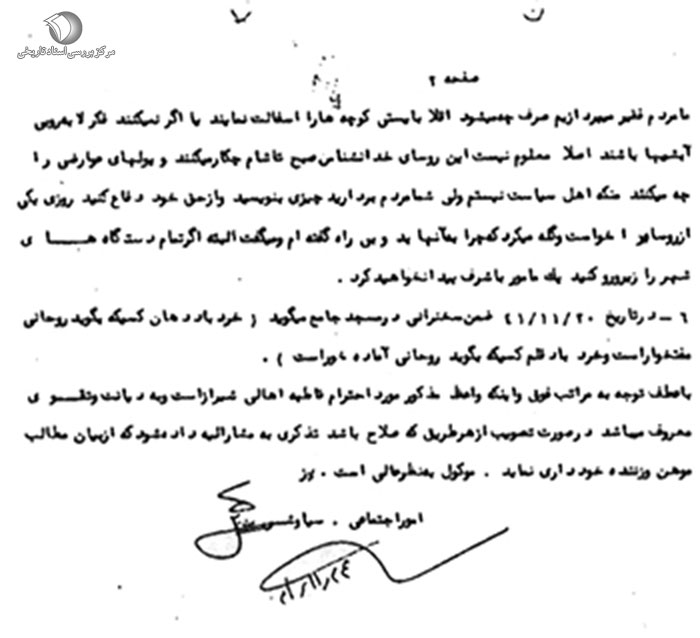 مرکز بررسی اسناد تاریخی
صفحه ۲
مامردم فقیر میپردازیم صرف چه میشود اقلا بایستی کوچه هارا اسفالت نمایند یا اگر نمیکنند فکر لایروبی
آبشیبها باشند اصلا معلوم نیست این روسای خدانشناس صبح تاشام چکارمیکنند و پولهای عوارض را
چه میکنند منکه اهل سیاست نیستم ولی شمامردم بردارید چیزی بنویسید وازحق خود دفاع کنید روزی یکی
ازروسا مرا خواست وگله میکرد که چرا به آنها بد و بی راه گفته ام ومیگفت البته اگرتمام دستگاه هـــا ی
شهر را زیرورو کنید یك مامور باشرف پیدانخواهید کرد .
۶ - در تاریخ ۲۰/۱۱/۴۱ ضمن سخنرانی درمسجد جامع میگوید ( خرد باد دهان کسیکه بگوید روحانی
مفتخواراست وخرد باد قلم کسیکه بگوید روحانی آماده خوراست ) .
باعطف توجه به مراتب فوق واینکه واعظ مذکور مورد احترام قاطبه اهالی شیرازاست وبه دیانت وتقـــو ی
معروف میباشد درصورت تصویب ازهرطریق که صلاح باشد تذکری به مشارالیه داده شود که ازبیان مطالب
موهن وزننده خودداری نماید . موکول بنظرعالی است .
امور اجتماعی .